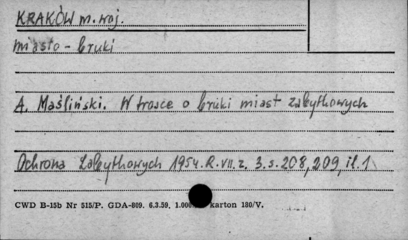 KRAKÓW m. woj.
miasto - bruki
A. Maśliński. W trosce o bruki miast zabytkowych
Ochrona Zabytkowych 1954. R. VII. z. 3. s. 208, 209, il. 1
CWD B-15b Nr 515/P. GDA-809. 6.3.59. 1.000 karton 180/V.